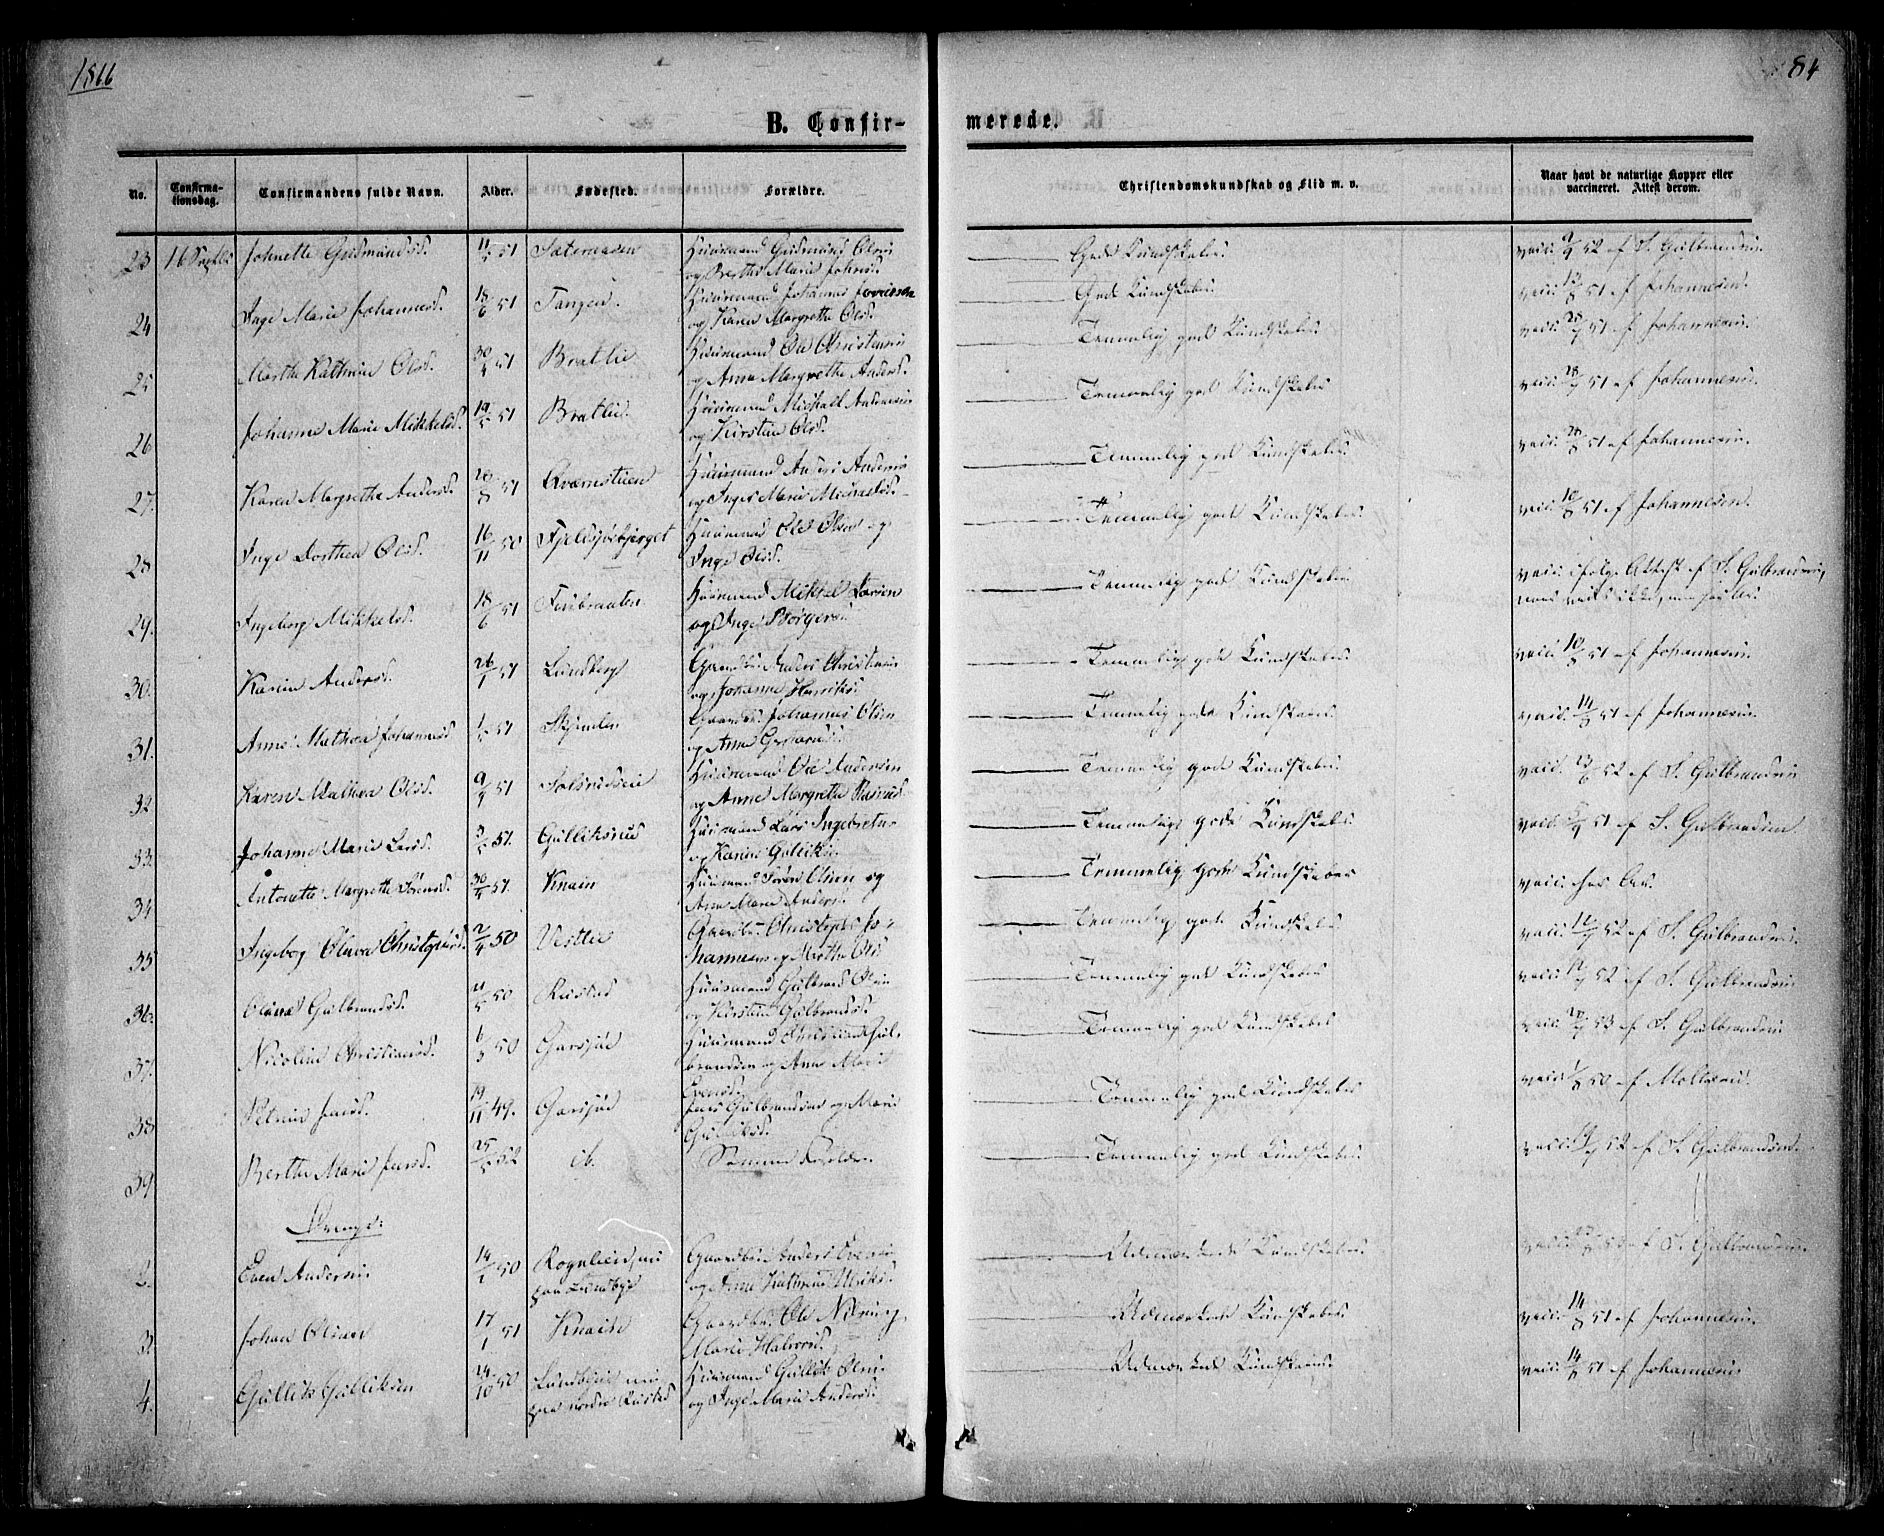 1866
84
B. Confir-
merede.
No.
Confirma-
tionsdag.
Confirmandens fulde Navn.
Alder.
Fødested.
Forældre.
Christendomskundskab og Flid m. v.
Naar havt de naturlige Kopper eller
vaccineret. Attest derom.
23 16 Septbr Johnette Gudmundsd. 11/5 51 Sateraasen Huusmand Gudmund Olsen
og Berthe Marie Johnsd.
Gode Kundskaber vacc. 9/9 52 af S. Gulbrandsen
24 Inge Marie Johannesd. 18/6 51 Tangen. Huusmand Johannes
og Karen Margrethe Olsd.
God Kundskab. vacc. 51 af Johannesen.
25 Marthe Kathrine Olsd. 30/4 51 Bratlie Huusmand Ole Christensen
og Anne Margrethe Andersd.
Temmelig god Kundskab vacc. 51 af Johannesen.
26 Johanne Marie Mikkelsd. 19/5 51 Bratlie. Huusmand Michael Andersen
og Kirstine Olsd.
Temmelig god Kundskab vacc. 51 af Johannesen.
27. Karen Margrethe Andersd. 20/8 51 Kværnstuen Huusmand Anders Andersen
og Inger Marie Michaelsd.
Temmelig god Kundskab vacc. 51 af Johannesen.
28 Inge Dorthea Olsd. 16/11 50 Fjeldsjøbjerget Huusmand Ole Olsen og
Inge Olsd.
Temmelig god Kundskab vacc. 10/8 51 af Johannesen.
29. Ingeborg Mikkelsd. 18/6 51 Furubraaten Huusmand Mikkel Larsen
og Inge Børgersd.
Temmelig god Kundskab vacc. ifølge Attest af S. Gulbrandsen,
30. Karen Andersd. 26/1 51 Lundberg Gaardbr. Anders Christensen
og Johanne Henriksd.
Temmelig god Kundskab vacc. 10/8 51 af Johannesen
31. Anne Mathea Johannesd 51 Gaardbr. Johannes Olsen
og Anne
Temmelig god Kundskab. vacc. 14/8 51 af Johannesen.
32 Karen Mathea Olsd. 9/4 51 Huusmand Ole Andersen
og Anne Margrethe Rasmusd.
Temmelig god Kundskab. vacc. 52 af S. Gulbrandsen
33. Johanne Marie Larsd. 51. Gulliksrud Huusmand Lars Ingebretsen
og Karine Gulliksd.
Temmelig god Kundskab. vacc. 51 af S. Gulbrandsen
34 Antonette Margrethe Sørensd. 30/4 51. Knain Huusmand Søren Olsen og
Anne Marie Andersd.
Temmelig god Kundskab vacc.
35 Ingeborg Oliva Christophersd. 2/4 50 Vestlie Gaardbr. Christopher Jo-
hannesen og Marthe Olsd
Temmelig god Kundskab. vacc. 52 af S. Gulbrandsen.
36. Oliane Gulbrandsd. 50 Rustad Huusmand Gulbrand Olsen
og Kirstine Gulbrandsd.
Temmelig god Kundskab vacc. 52 af S. Gulbrandsen
37. Nicoline Christiansd. 6/3 50 Garsjøe Huusmand Christian Gul-
brandsen og Anne Marie
Evensd.
Temmelig god Kundskab vacc. 53 af S. Gulbrandsen
38 Petrine Jensd. 19/11 49. Garsjøe Jens Gulbrandsen og Marie
Gulliksd.
Temmelig god Kundskab vacc. 1/8 50 af
39 Berthe Marie Jensd. 25/5 52 ib. Samme Forældre.
Temmelig god Kundskab. vacc. 52 af S. Gulbrandsen.
Drenge:
2. Even Andersen 14/1 50 Rognlien, nu Gaardbr. Anders Evensen
paa Lundbye og Anne Kathrine Ulriksd.
Udmærket Kundskab. vacc. af S. Gulbrandsen.
3. Johan Olsen 17/1 51 Knain Gaardbr. Ole Nilsen og
Marie Halvorsd.
Udmærket Kundskab vacc. 14/8 51 af Johannesen.
4. Gullik Gulliksen 24/10 50 Lundbye nu Huusmand Gullik Olsen
paa nordre Rustad og Inge Marie Andersd.
Udmærket Kundskab vacc. 14/8 51 af Johannesen